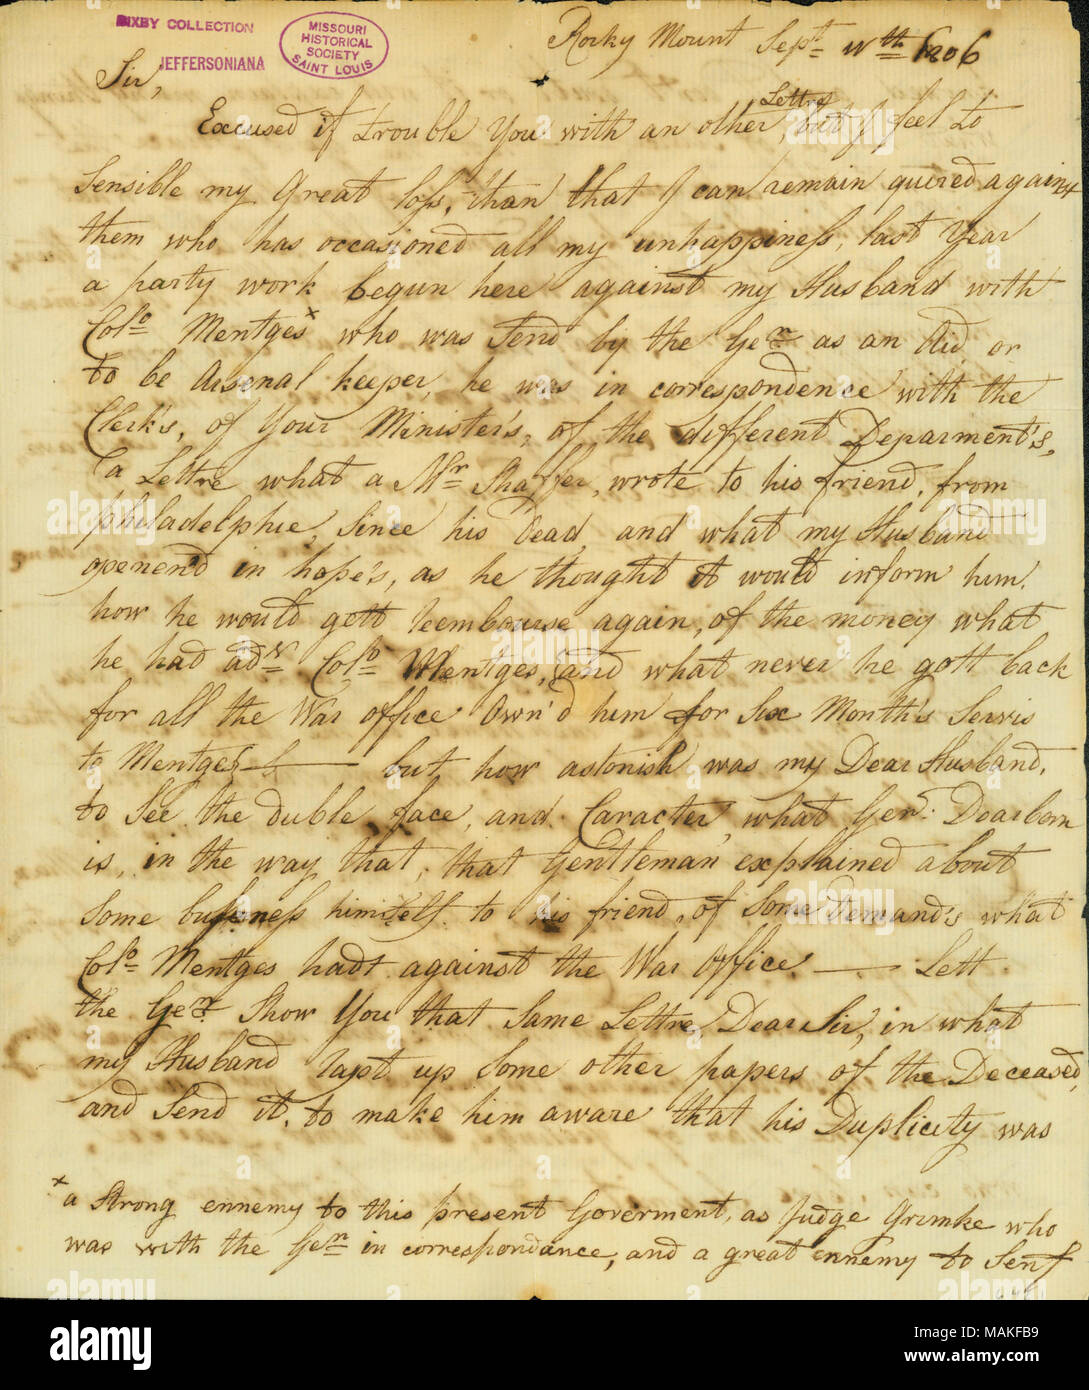 BIXBY COLLECTION
JEFFERSONIANA
MISSOURI
HISTORICAL
SOCIETY
SAINT LOUIS
Rocky Mount Sept 11th 1806
Sir,
Excused if trouble You with an other Lettre, but I feel to
Sensible my Great loss, than that I can remain quired against
them who has occasioned all my unhappiness, last Year
a party work begun here against my Husband with
Colo Mentges x who was Send by the Genr as an Aid or
to be Arsenal keeper, he was in correspondence with the
Clerk's, of Your Minister's, of the different Deparment's,
a Lettre what a Mr Shaffer, wrote to his friend, from
philadelphie, Since his Dead, and what my Husband
openen'd in hope's, as he thought it would inform him,
how he would gett Reembourse again, of the money what
he had adv Colo Mentges, and what never he gott back
for all the War office Own'd him for Six Month's Servis
to Mentges — but how astonish was my Dear Husband,
to See the duble face, and Caracter, what Genr. Dearborn
is, in the way that, that Gentleman explained about
Some business himself to his friend, of Some Demand's what
Colo Mentges hadt against the War office — Lett
the Genr. Show You that Same Lettre, Dear Sir, in what
my Husband rapt up Some other papers of the Deceased,
and Send it, to make him aware that his Duplicity was
x a Strong ennemy to this present Goverment, as Judge Grimke who
was with the Genr in correspondance, and a great ennemy to
alamy
Image ID: MAKFB9
www.alamy.com